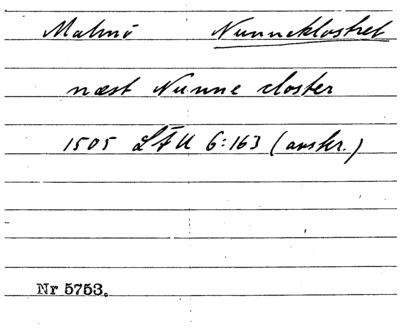 Malmö Nunneklostret
næst Nunne closter
1505 LÅU 6:163 (avskr.)
Nr 5753.